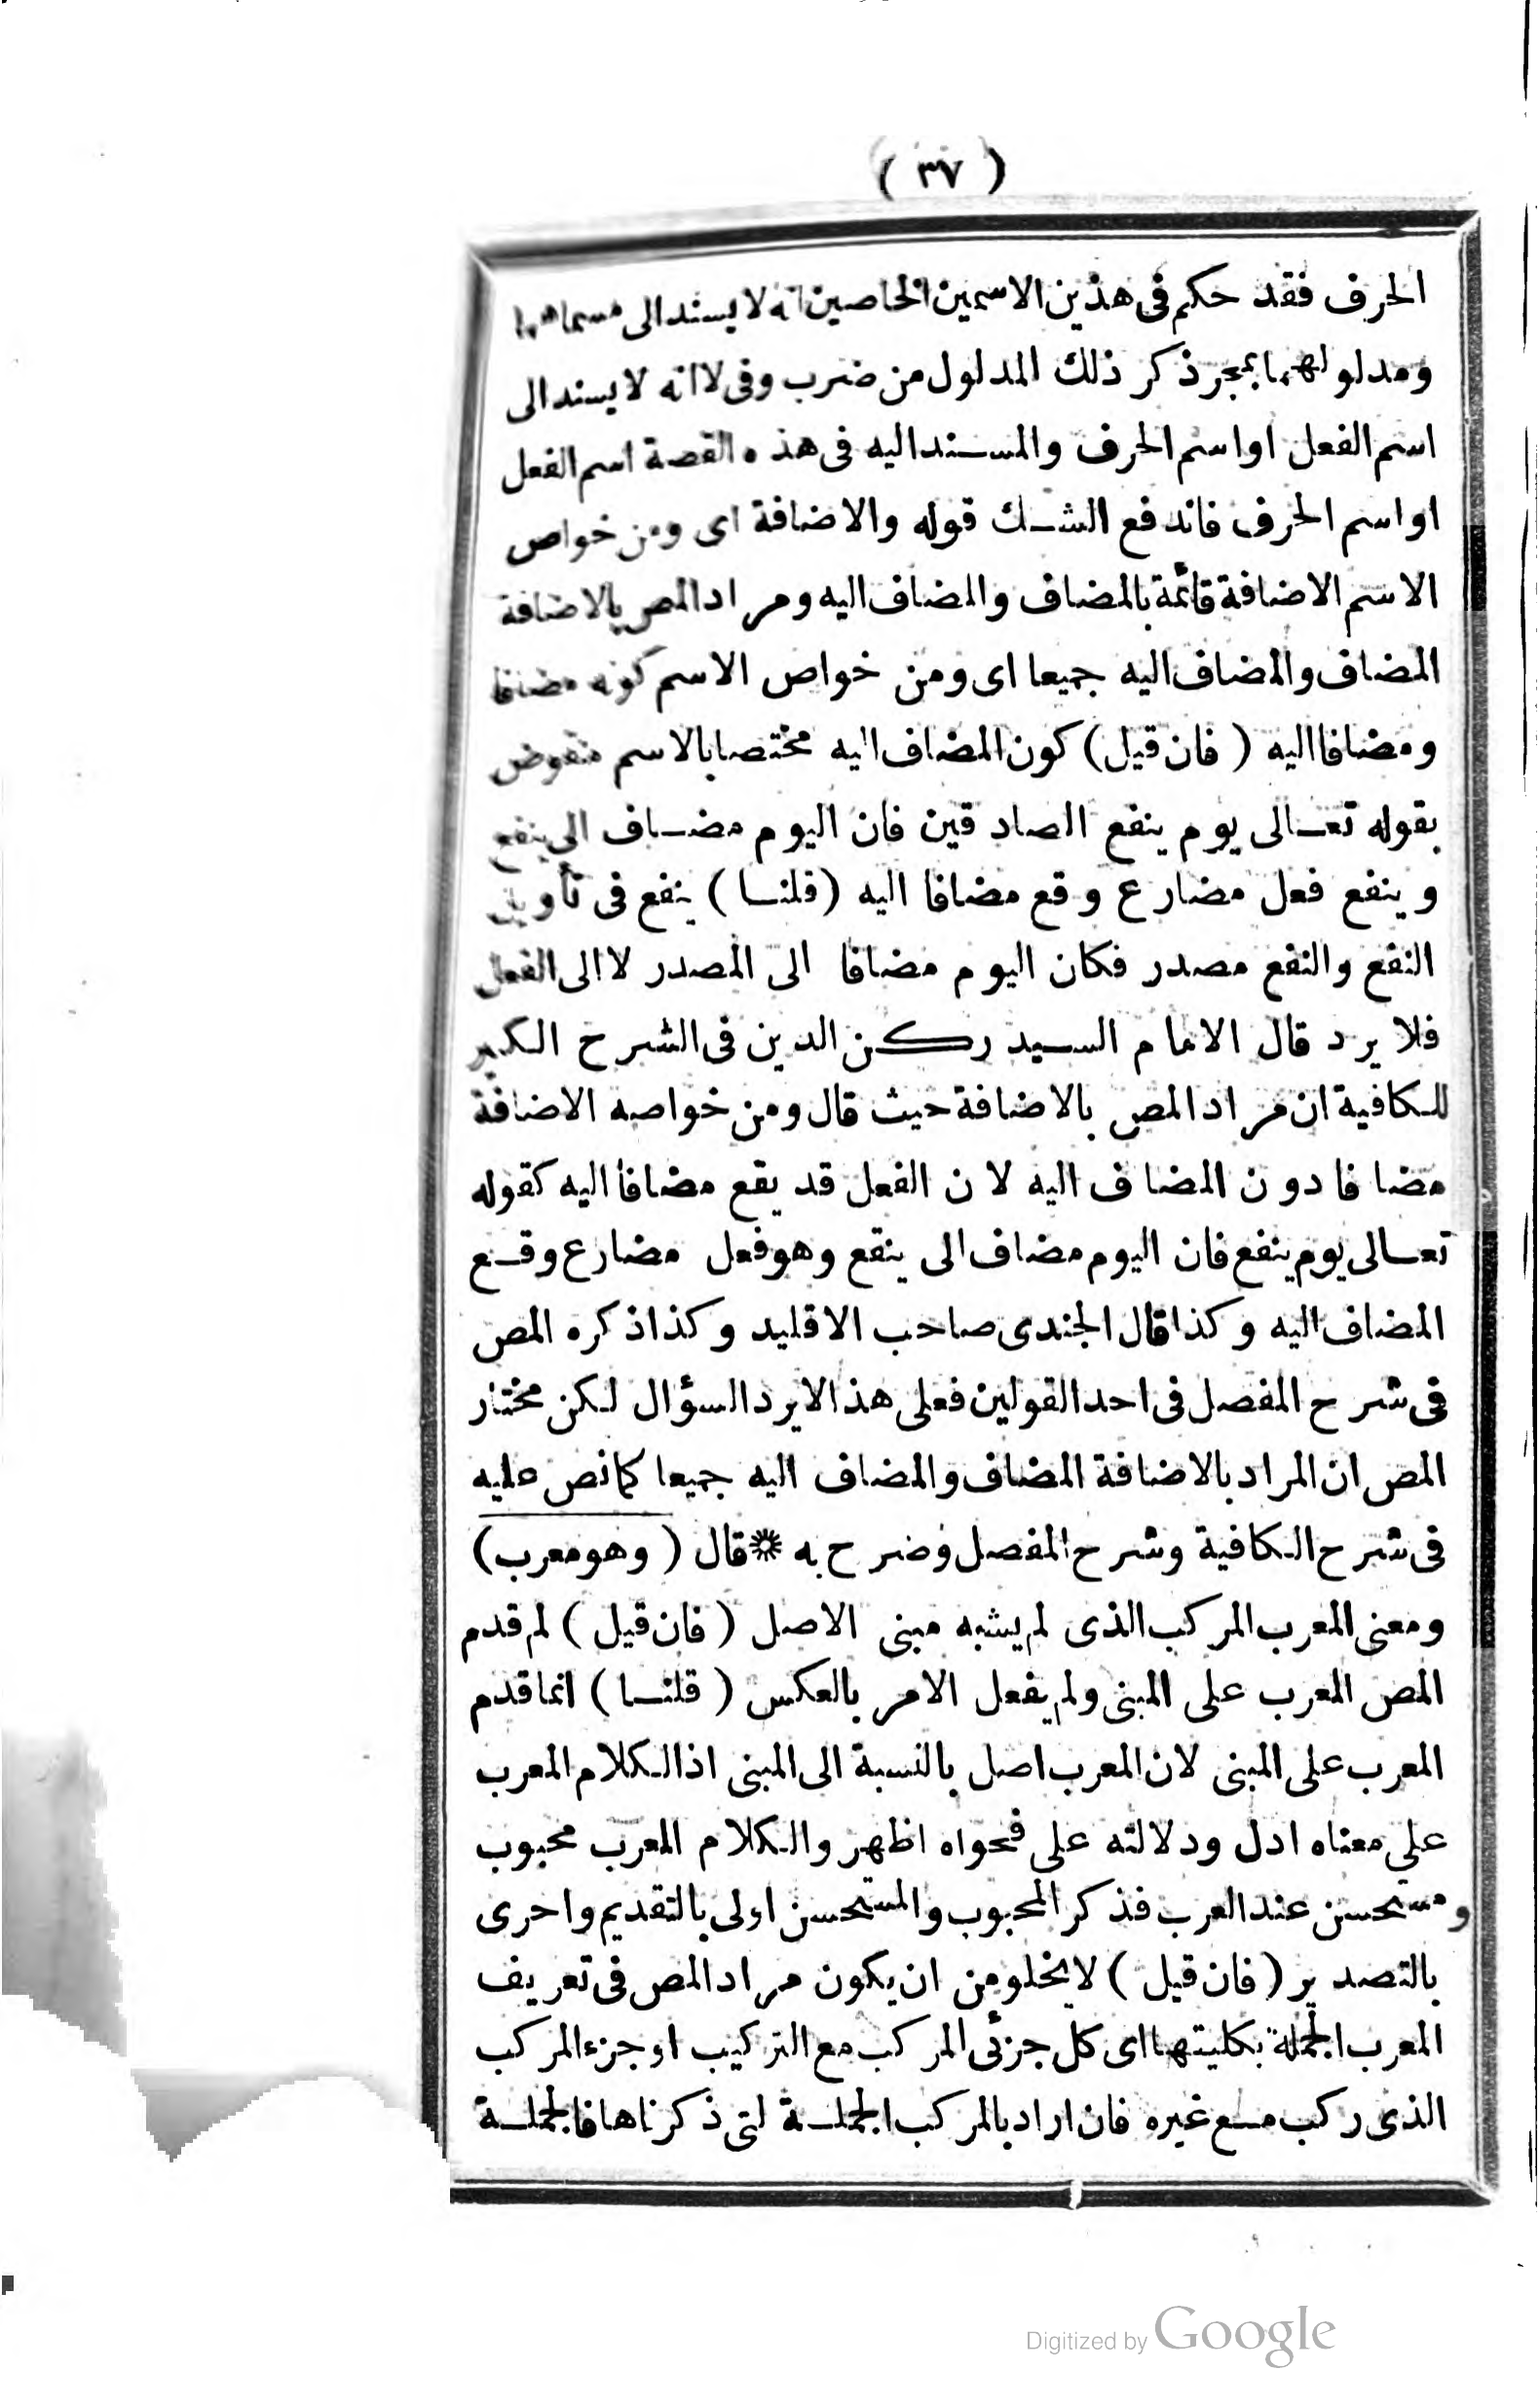 ( ٣٧ )
الحرف فقد حكم فى هذين الاسمين الخاصين انه لا يسند الى مسماهما
ومدلولهما بمجرد ذكر ذلك المدلول من ضرب وفى لا انه لا يسند الى
اسم الفعل او اسم الحرف والمسند اليه فى هذه القصة اسم الفعل
او اسم الحرف فاندفع الشك قوله والاضافة اى ومن خواص
الاسم الاضافة قائمة بالمضاف والمضاف اليه ومراد المص بالاضافة
المضاف والمضاف اليه جميعا اى ومن خواص الاسم كونه مضافا
ومضافا اليه ( فان قيل ) كون المضاف اليه مختصا بالاسم منقوض
بقوله تعالى يوم ينفع الصادقين فان اليوم مضاف الى ينفع
وينفع فعل مضارع وقع مضافا اليه ( قلنا ) ينفع فى تأويل
النفع والنفع مصدر فكان اليوم مضافا الى المصدر لا الى الفعل
فلا يرد قال الامام السيد ركن الدين فى الشرح الكبير
للكافية ان مراد المص بالاضافة حيث قال ومن خواصه الاضافة
مضافا دون المضاف اليه لان الفعل قد يقع مضافا اليه كقوله
تعالى يوم ينفع فان اليوم مضاف الى ينقع وهو فعل مضارع وقع
المضاف اليه وكذا قال الجندى صاحب الاقليد وكذا ذكره المص
فى شرح المفصل فى احد القولين فعلى هذا لا يرد السؤال لكن مختار
المص ان المراد بالاضافة المضاف والمضاف اليه جميعا كما نص عليه
فى شرح الكافية وشرح المفصل وضرح به ❋ قال ( وهو معرب )
ومعنى المعرب المركب الذى لم يشبه مبنى الاصل ( فان قيل ) لم قدم
المص المعرب على المبنى ولم يفعل الامر بالعكس ( قلنا ) انما قدم
المعرب على المبنى لان المعرب اصل بالنسبة الى المبنى اذ الكلام المعرب
على معناه ادل ودلالته على فحواه اظهر والكلام المعرب محبوب
ومستحسن عند العرب فذكر المحبوب والمستحسن اولى بالتقديم واحرى
بالتصدير ( فان قيل ) لا يخلو من ان يكون مراد المص فى تعريف
المعرب الجملة بكليتها اى كل جزئى المركب مع التركيب او جزء المركب
الذى ركب مع غيره فان اراد بالمركب الجملة لتى ذكرناها فالجملة
Digitized by Google